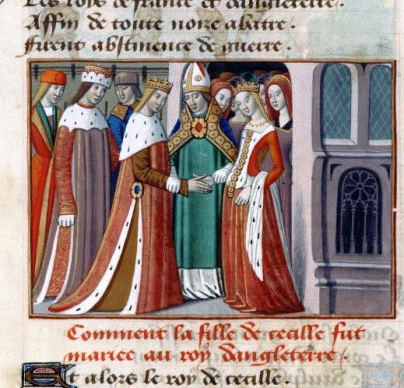 Les roys de france et dangleterre.
Affin de toute noise abatre.
furent abstinence de guerre.
Comment la fille de cecille fut
mariee au roy dangleterre.
Et alors le roy de cecille